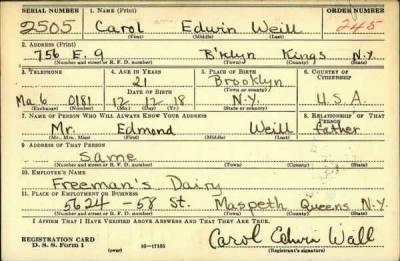 SERIAL NUMBER 1. NAME (Print) ORDER NUMBER
2505 Carol Edwin Weill 245
(First) (Middle) (Last)
2. ADDRESS (Print)
756 E. 9 B'klyn Kings N.Y.
(Number and street or R. F. D. number) (Town) (County) (State)
3. TELEPHONE 4. AGE IN YEARS 5. PLACE OF BIRTH 6. COUNTRY OF CITIZENSHIP
21 Brooklyn
DATE OF BIRTH (Town or county)
Ma. 6 0181 12 12 18 N.Y. U.S.A.
(Exchange) (Number) (Mo.) (Day) (Yr.) (State or country)
7. NAME OF PERSON WHO WILL ALWAYS KNOW YOUR ADDRESS 8. RELATIONSHIP OF THAT PERSON
Mr. Edmond Weill father
(Mr., Mrs., Miss) (First) (Middle) (Last)
9. ADDRESS OF THAT PERSON
Same
(Number and street or R. F. D. number) (Town) (County) (State)
10. EMPLOYER'S NAME
Freeman's Dairy
11. PLACE OF EMPLOYMENT OR BUSINESS
5624 - 58 St. Maspeth Queens N.Y.
(Number and street or R. F. D. number) (Town) (County) (State)
I AFFIRM THAT I HAVE VERIFIED ABOVE ANSWERS AND THAT THEY ARE TRUE.
REGISTRATION CARD
D. S. S. Form 1 (over) 16—17105 Carol Edwin Weill
(Registrant's signature)